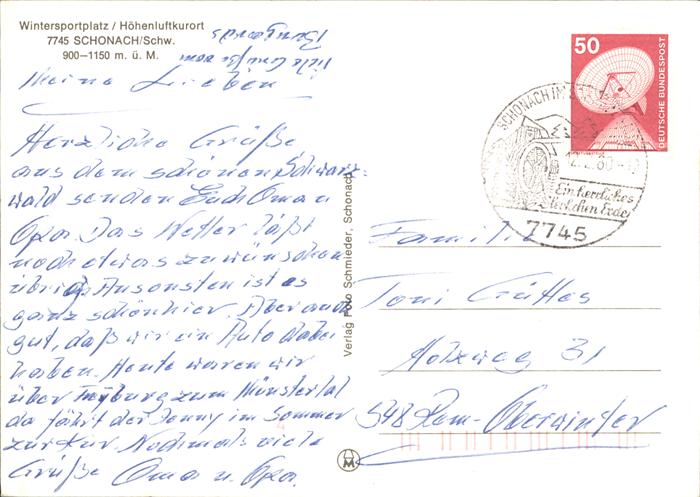 Wintersportplatz / Höhenluftkurort
7745 SCHONACH/Schw.
900—1150 m. ü. M.
Viele Grüße vom
Meine Lieben
Herzliche Grüße
aus dem schönen Schwarz-
wald senden Euch Oma u
Opa. Das Wetter läßt
noch etwas zu wünschen
übrig. Ansonsten ist es
ganz schön hier. Aber auch
gut, daß wir ein Auto dabei
haben. Heute waren wir
über Freiburg zum Münstertal
da fährt der Jonny im Sommer
zur Kur. Nochmals viele
Grüße Oma u. Opa.
Verlag Foto Schmieder, Schonach
50
DEUTSCHE BUNDESPOST
SCHONACH IM
Ein herrliches
Stückchen Erde
7745
Familie
Toni Güttes
Holzweg 31
548 Rem.-Oberwinter